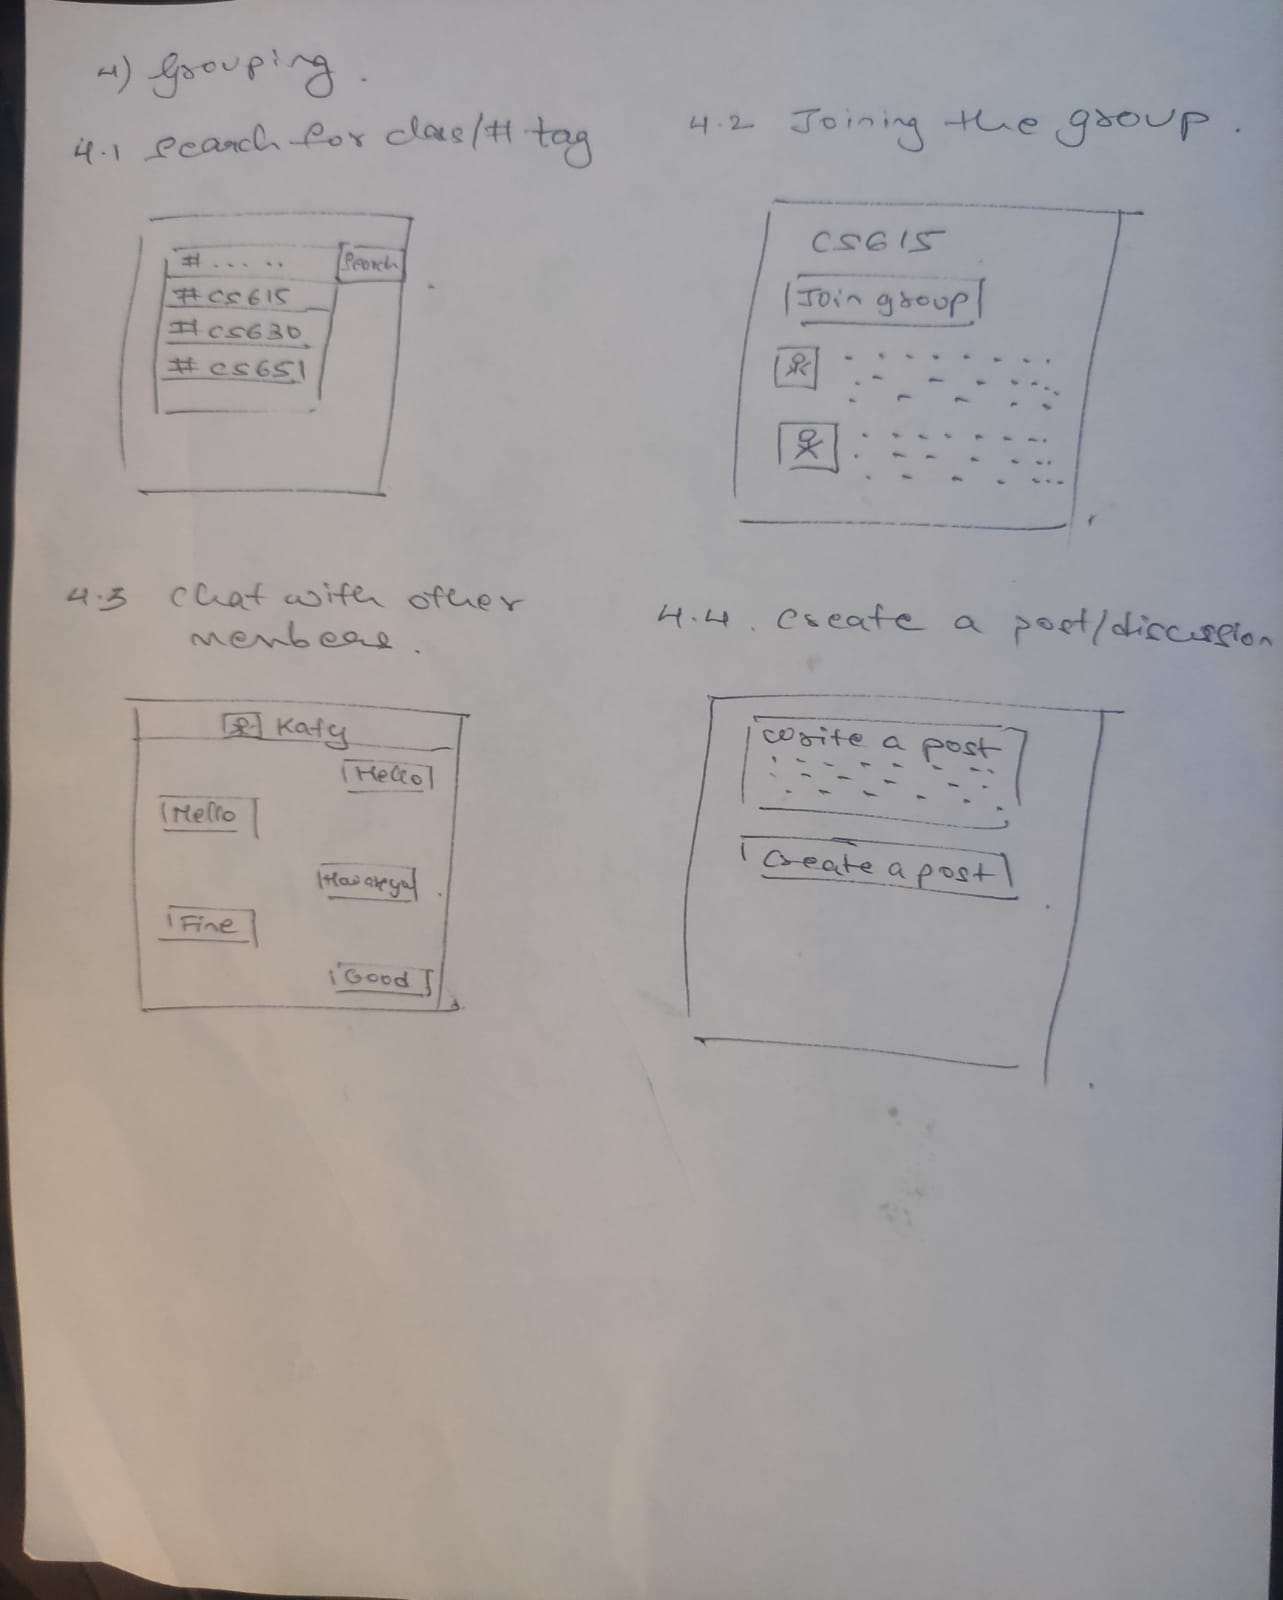 4) Grouping.
4.1 Search for class/# tag
#..... Search
#CS615
#CS630
#CS651
4.2 Joining the group.
CS615
Join group
4.3 Chat with other
members.
Katy
Hello
Hello
Fine
Good
4.4. Create a post/discussion
Write a post
Create a post